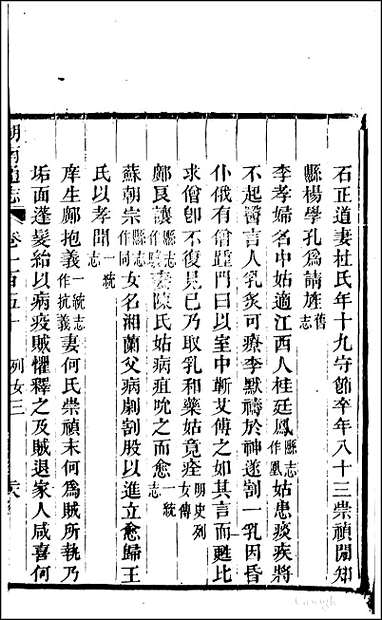 石正道妻杜氏年十九守節卒年八十三崇禎閒知
縣楊學孔爲請旌舊志
李孝婦名中姑適江西人桂廷鳳縣志作凰姑患痰疾將
不起醫言人乳炙可療李默禱於神遂割一乳因昏
仆俄有僧踵門曰以室中蘄艾傅之如其言而甦比
求僧卽不復見已乃取乳和藥姑竟痊明史列女傳
鄺艮讓妻陳氏姑病疽吮之而愈一統志
蘇朝宗縣志作同女名湘蘭父病劇割股以進立愈歸王
氏以孝聞一統志
庠生鄺抱義一統志作抗義妻何氏崇禎末何爲賊所執乃
垢面蓬髮紿以病疫賊懼釋之及賊退家人咸喜何
湖南通志 卷一百五十 列女三